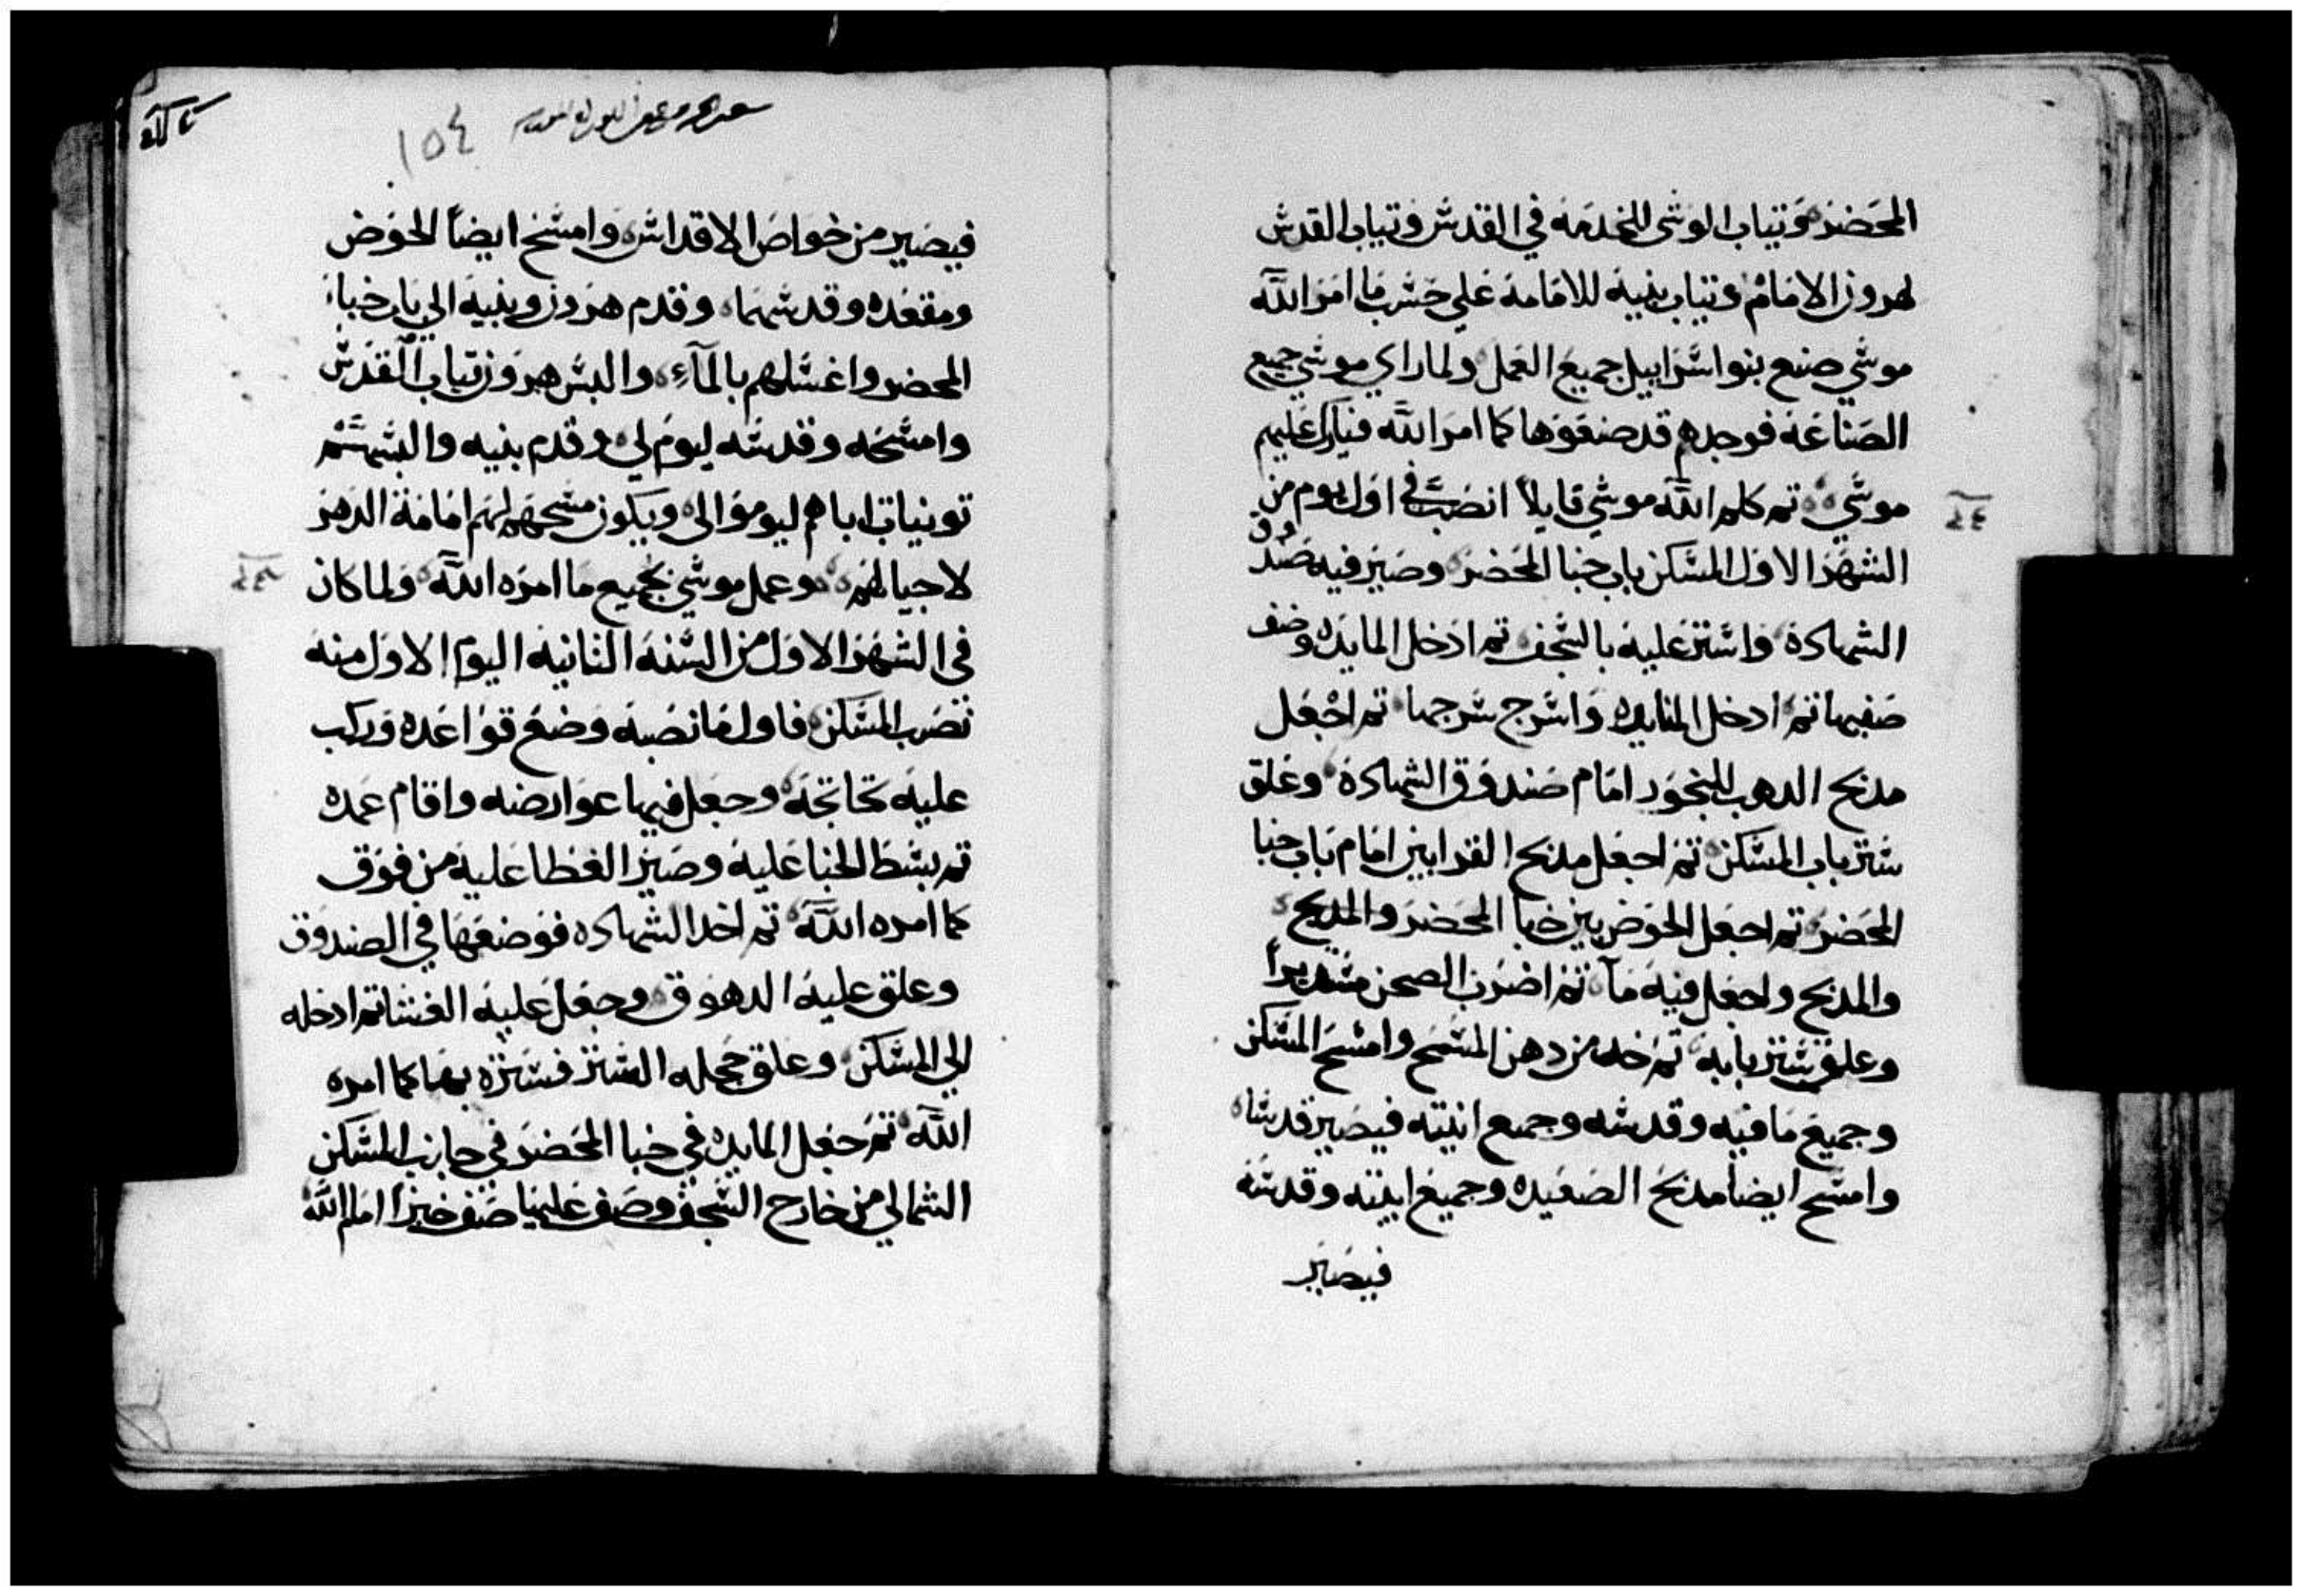 المحضر وتياب الوشي للخدمه في القدش وتياب القدش
لهرون الامام وتياب بنيه للامامه علي حسب ما امر الله
موشي صنع بنو اسراييل جميع العمل ولما راي موشي جميع
الصناعه فوجدهم قد صنعوها كما امر الله فبارك عليهم
موشي تم كلم الله موشي قايلاً انصب في اول يوم من
الشهر الاول المسكن باب خبا المحضر وصير فيه صندوق
الشهادة واستر عليه بالسجف تم ادخل المايده وصف
صفيها تم ادخل المنايره واسرج سرجها تم اجعل
مدبح الدهب للبخور امام صندوق الشهادة وعلق
ستر باب المسكن تم اجعل مدبح القرابين امام باب خبا
المحضر تم اجعل الحوض بين خبا المحضر والمدبح
والمدبح واجعل فيه مآ تم اضرب الصحن مستديراً
وعلق ستر بابه تم خد من دهن المسح وامسح المسكن
وجميع ما فيه وقدسه وجميع انيته فيصير قدسا
وامسح ايضا مدبح الصعيده وجميع انيته وقدسه
فيصير
١٥٤
فيصير من خواص الاقداس وامسح ايضاً الحوض
ومقعده وقدسهما وقدم هرون وبنيه الي باب خباء
المحضر واغسلهم بالمآء والبس هرون تياب القدس
وامسحه وقدسه ليوم لي وقدم بنيه والبسهم
تو نياب اباهم ليومو الي ويكون مسحهم لهم امامة الدهر
لاجيالهم وعمل موشي بجميع ما امره الله ولما كان
في الشهر الاول من السنه التانيه اليوم الاول منه
نصب المسكن فاول ما نصبه وضع قواعده وركب
عليه تخاتجه وجعل فيها عوارضه واقام عمده
تم بسط الخبا عليه وصير الغطا عليه من فوق
كما امره الله تم اخد الشهاده فوضعها في الصندوق
وعلق عليه الدهوق وجعل عليه الغشا تم ادخله
الي المسكن وعلق حجله الستر فستره بها كما امره
الله تم جعل المايده في خبا المحضر في جانب المسكن
الشمالي من خارج السجف وصف عليها صف خبزا امام الله